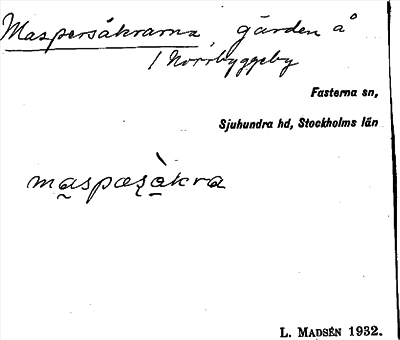 Maspersåkrarna, gärden å
/ Norrbyggeby
Fasterna sn,
Sjuhundra hd, Stockholms län
maspæʂàkra
L. Madsén 1932.